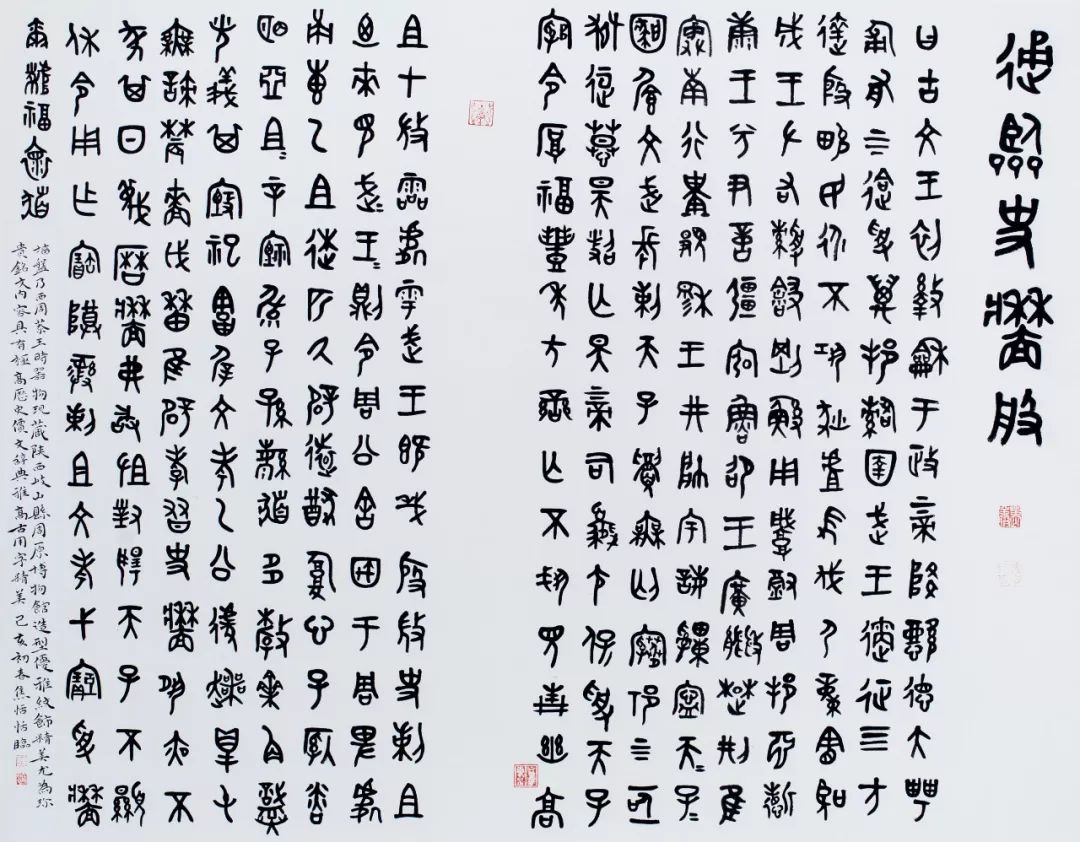 史牆般
曰古文王初盭龢于政上帝降懿德大甹
匍有上下迨受萬邦圉武王遹征四方
達殷畯民永不巩狄虘伐尸童憲聖
成王左右剛鯀用肇徹周邦淵哲
康王兮尹億疆宖魯卲王廣楚荊隹
寏南行祗穆王井帥宇誨申寧天子
文武長剌天子無匄上下亟
獄桓慕昊照亡斁上帝司夒尤保受天子
綰令厚福豐年方蠻亡不見青幽高
且才微霝處雩武王既殷微史剌且
廼來見武王則令周公舍圖于周卑處
甬惠乙且逨匹厥辟遠猷腹心子粦
明亞且辛甄毓子孫繁祓多釐齊角熾
光義其禋祀害屖文考乙公遽爽得屯
無諫農穡戉曆隹辟孝友史牆夙夜不
墜其日蔑曆牆弗敢沮對揚天子不顯
休令用乍寶尊彝剌且文考弋受牆
爾福懷祓
墻盤乃西周恭王時器物現藏陝西岐山縣周原博物館造型優雅紋飾精美尤為珍
貴銘文內容具有極高歷史價文辭典雅高古用字精美己亥初春焦恬恬臨